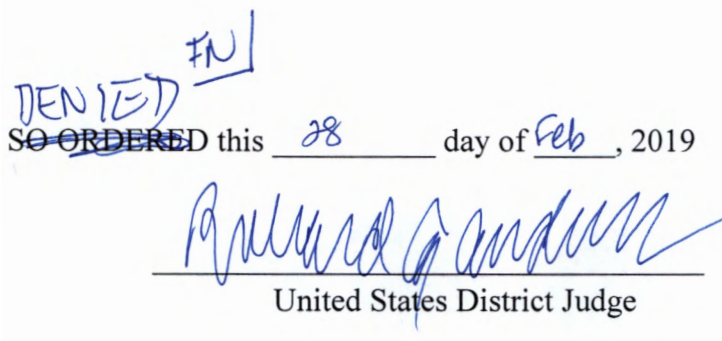 FN
DENIED
SO ORDERED this 28 day of Feb, 2019
Richard
United States District Judge